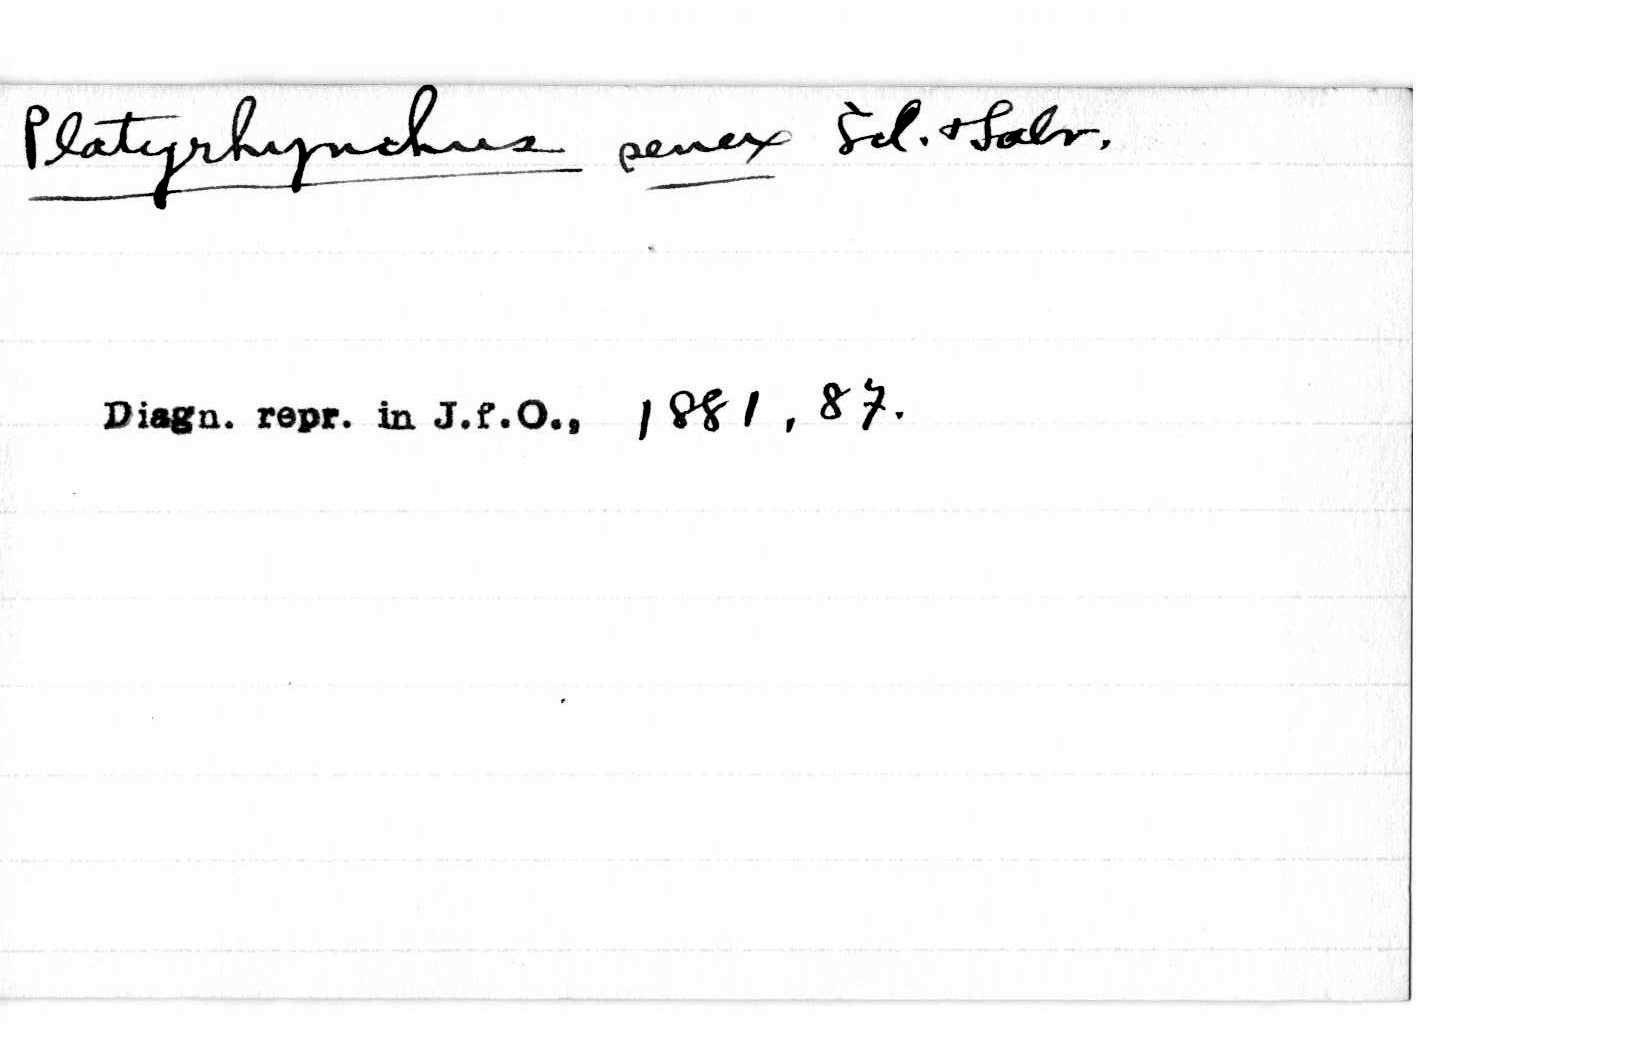 Platyrhynchus senex Scl. & Salv.
Diagn. repr. in J.f.O., 1881, 87.